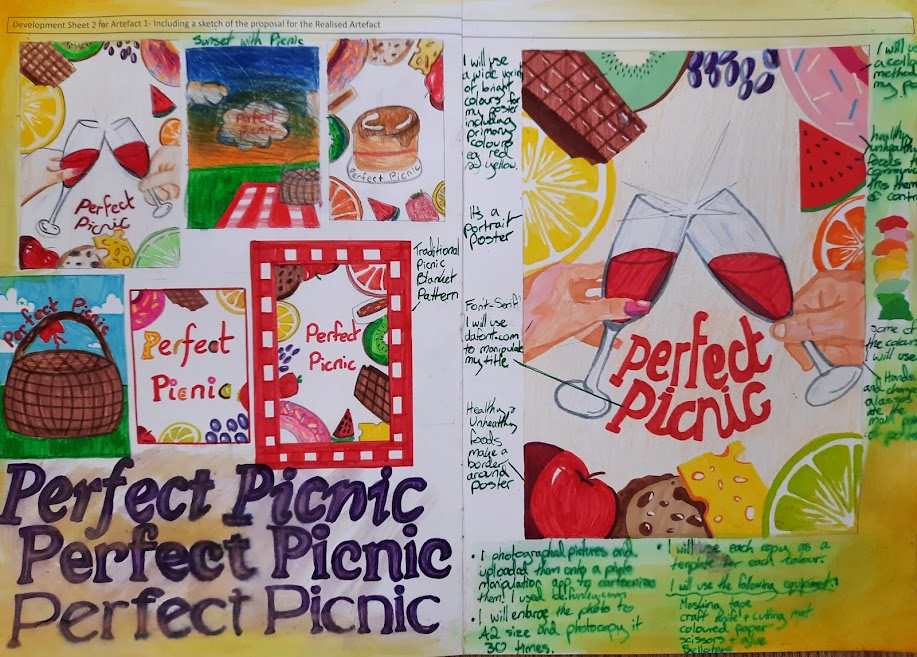 Development Sheet 2 for Artefact 1- Including a sketch of the proposal for the Realised Artefact
Sunset with Picnic
Perfect
Picnic
Perfect
Picnic
Perfect Picnic
Perfect Picnic
Perfect
Picnic
Perfect
Picnic
Traditional
Picnic
Blanket
Pattern
Perfect Picnic
Perfect Picnic
Perfect Picnic
I will use
a wide
of bright
colours for
my poster
including
primary
colours
eg red
yellow.
It's a
Portrait
Poster
Font-Serif
I will use
dafont.com
to manipulate
my title
Healthy
Unhealthy
foods
make a
border
around
poster
Perfect
Picnic
I will
method
my
healthy
unhealthy
foods
this
of
Some of
the colours
I will use
Hands
and
glasses
are the
main
of
• I photographed pictures and
uploaded them onto a photo
manipulation app to cartoonize
them! I used befunky.com
• I will enlarge the photo to
A2 size and photocopy it
30 times.
• I will use each copy as a
template for each colour.
I will use the following equipment:
Masking tape
craft knife + cutting mat
coloured paper
scissors + glue